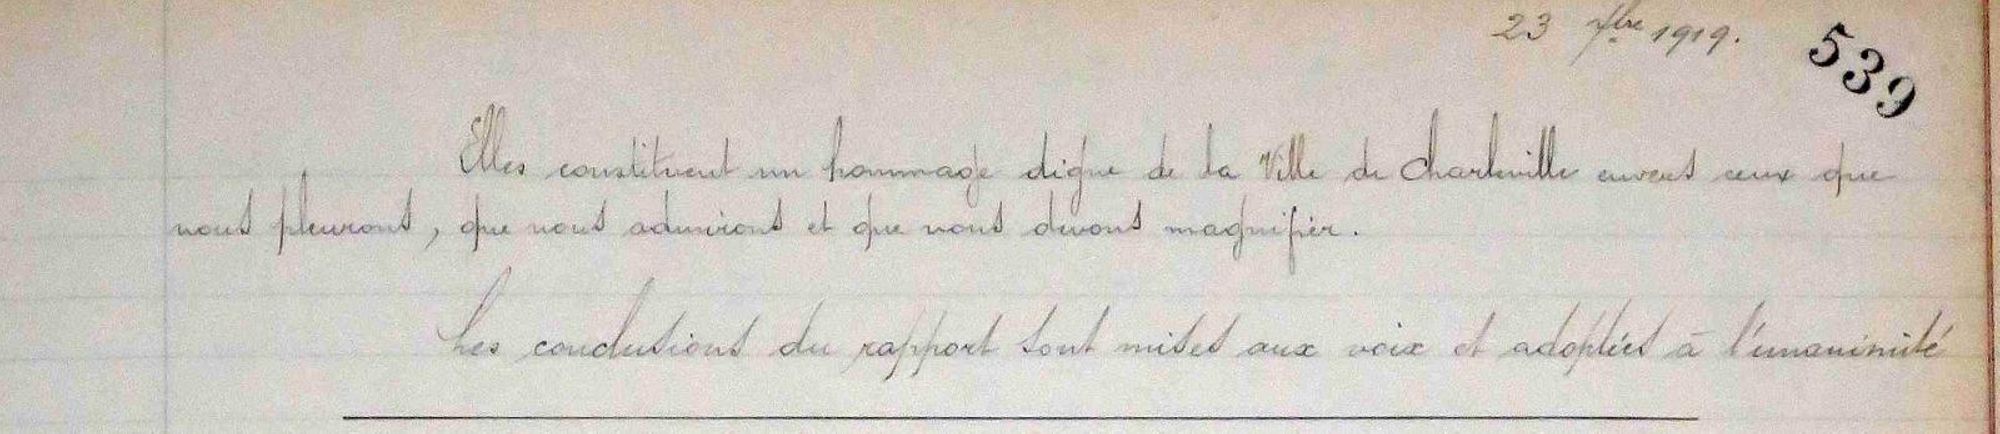 23 7bre 1919.
539
Elles constituent un hommage digne de la Ville de Charleville envers ceux que
nous pleurons, que nous admirons et que nous devons magnifier.
Les conclusions du rapport sont mises aux voix et adoptées à l'unanimité